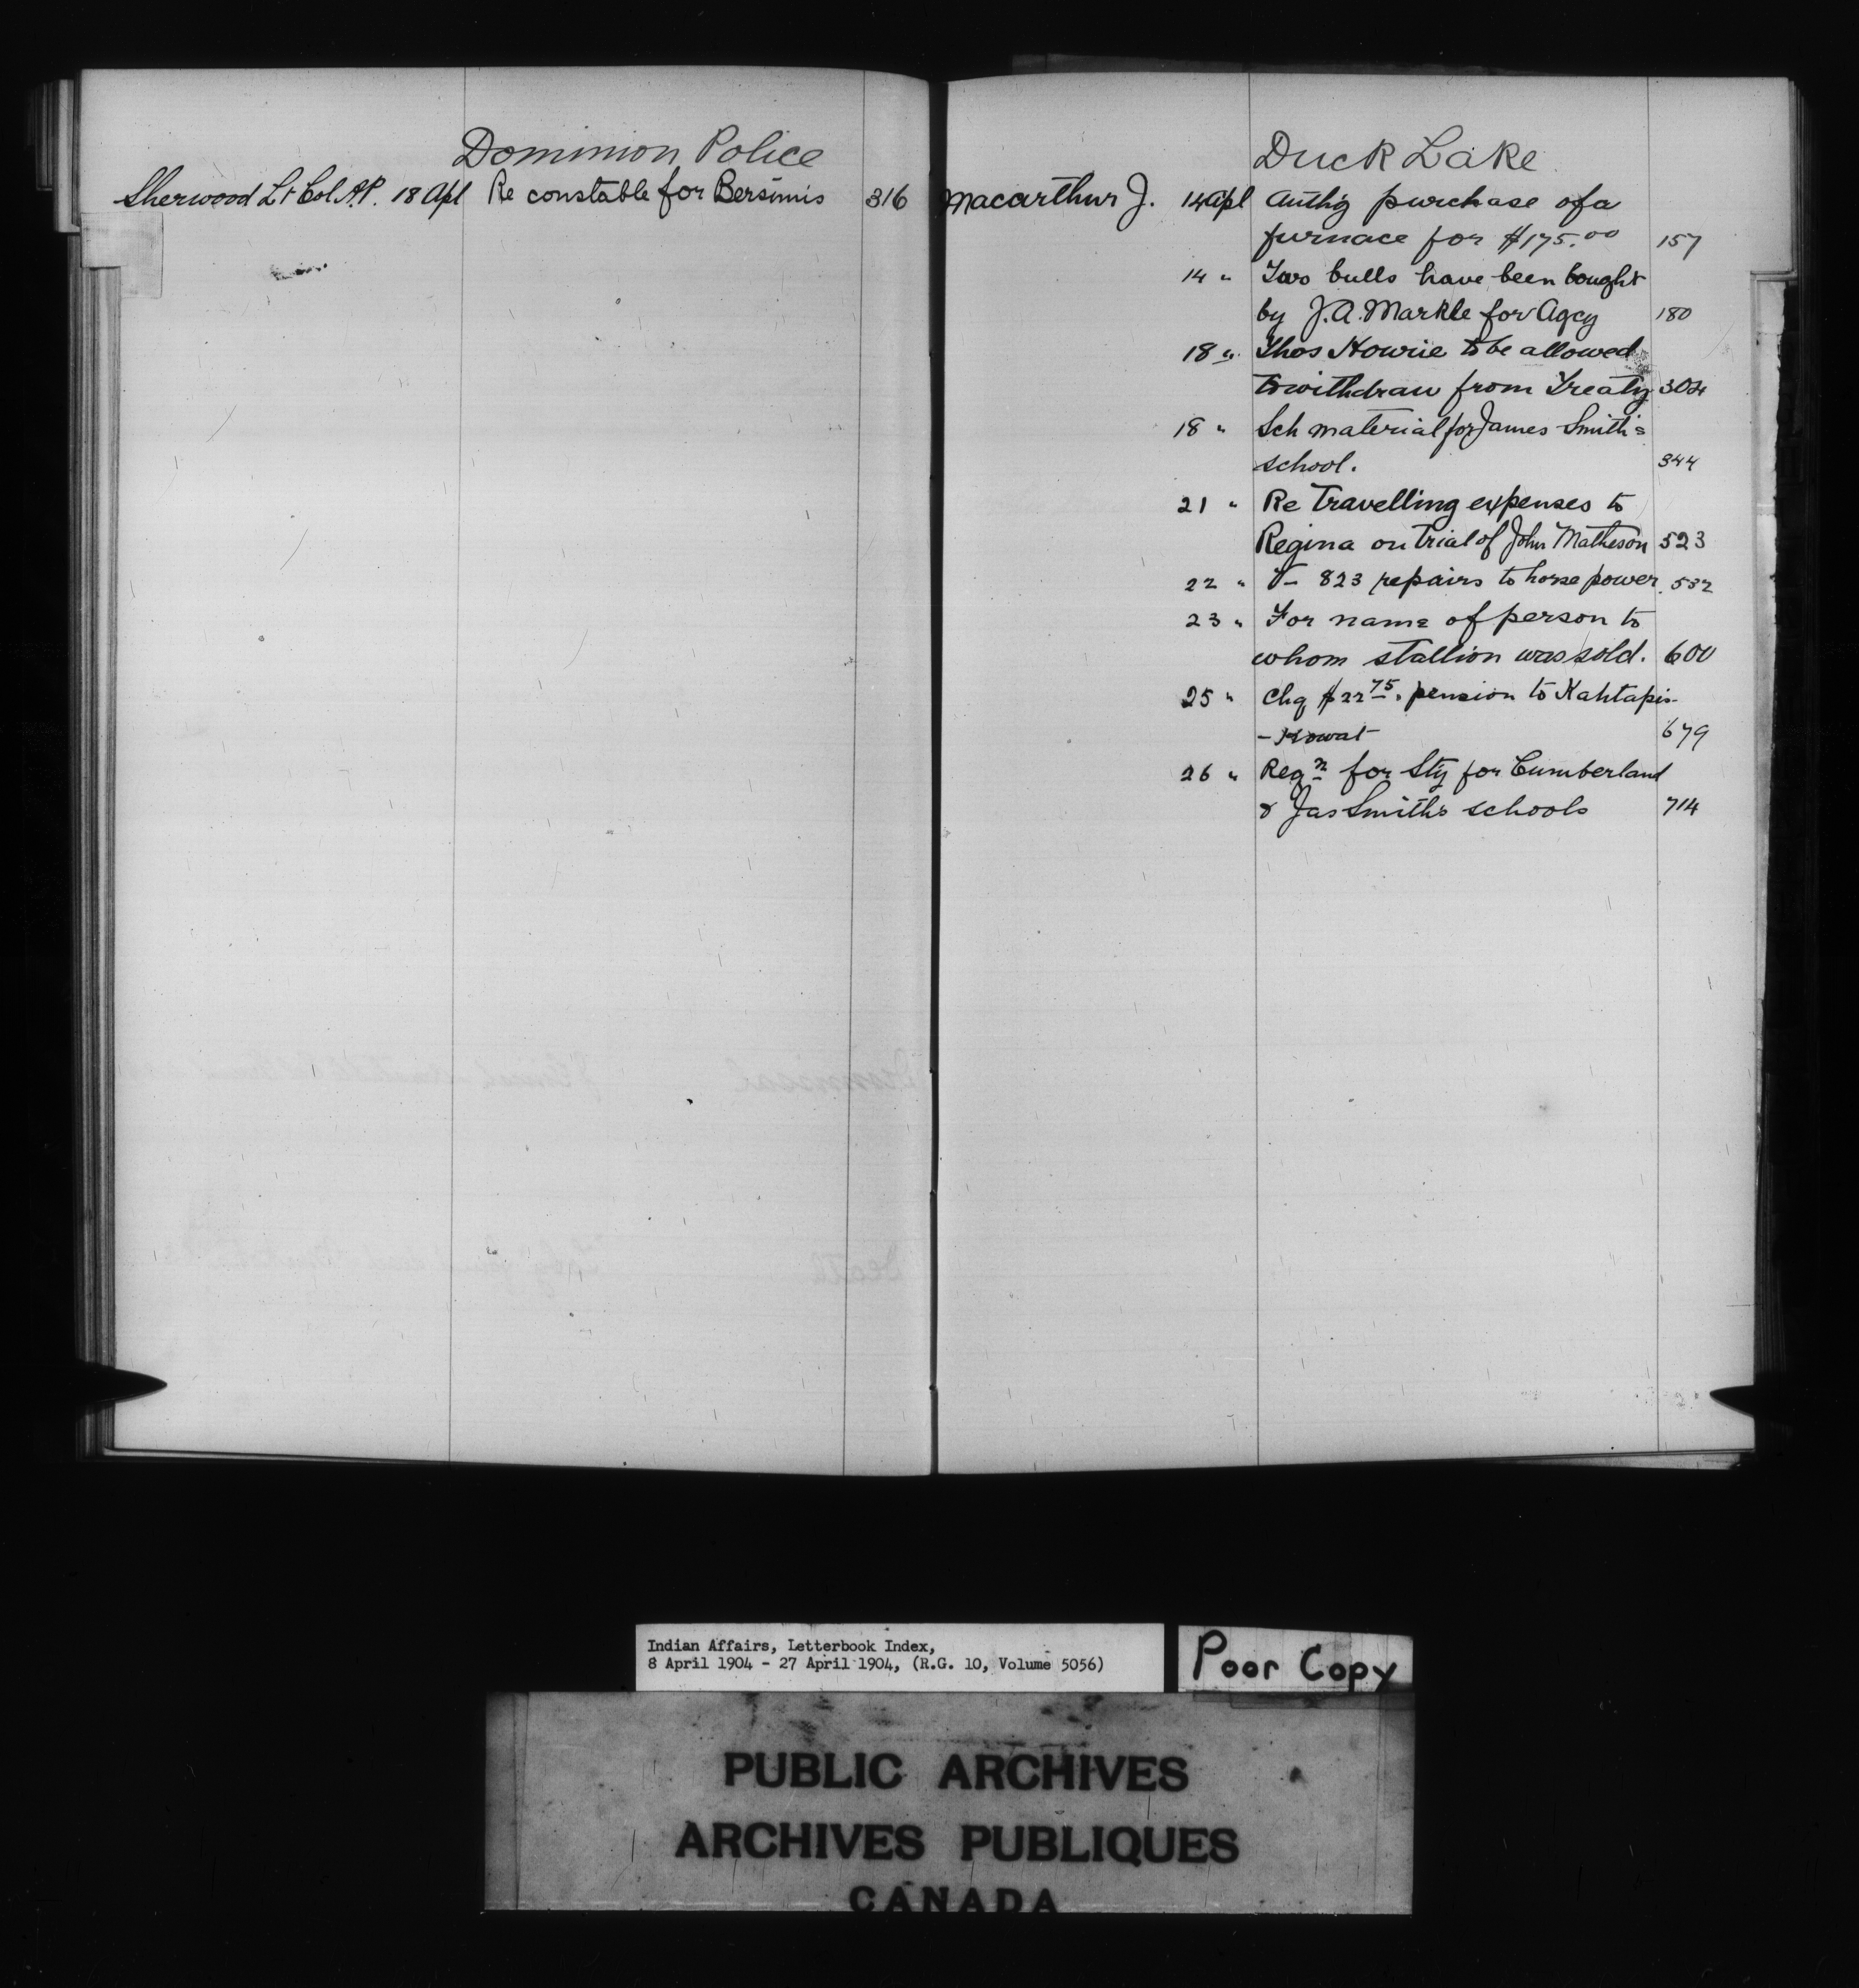 Dominion Police
Sherwood Lt Col A.P. 18 Apl Re constable for Bersimis 316
Duck Lake
Macarthur J. 14 Apl Authg purchase of a
furnace for $175.00 157
14 " Two bulls have been bought
by J.A. Markle for Agcy 180
18 " Thos Howrie to be allowed
to withdraw from Treaty 304
18 " Sch material for James Smith's
school. 344
21 " Re Travelling expenses to
Regina on trial of John Matheson 523
22 " V- 823 repairs to horse power 532
23 " For name of person to
whom stallion was sold. 600
25 " Chq $22 75. pension to Kahtapis-
-Kowat 679
26 " Reqn for Sty for Cumberland
& Jas Smith's schools 714
Indian Affairs, Letterbook Index,
8 April 1904 - 27 April 1904, (R.G. 10, Volume 5056)
Poor Copy
PUBLIC ARCHIVES
ARCHIVES PUBLIQUES
CANADA